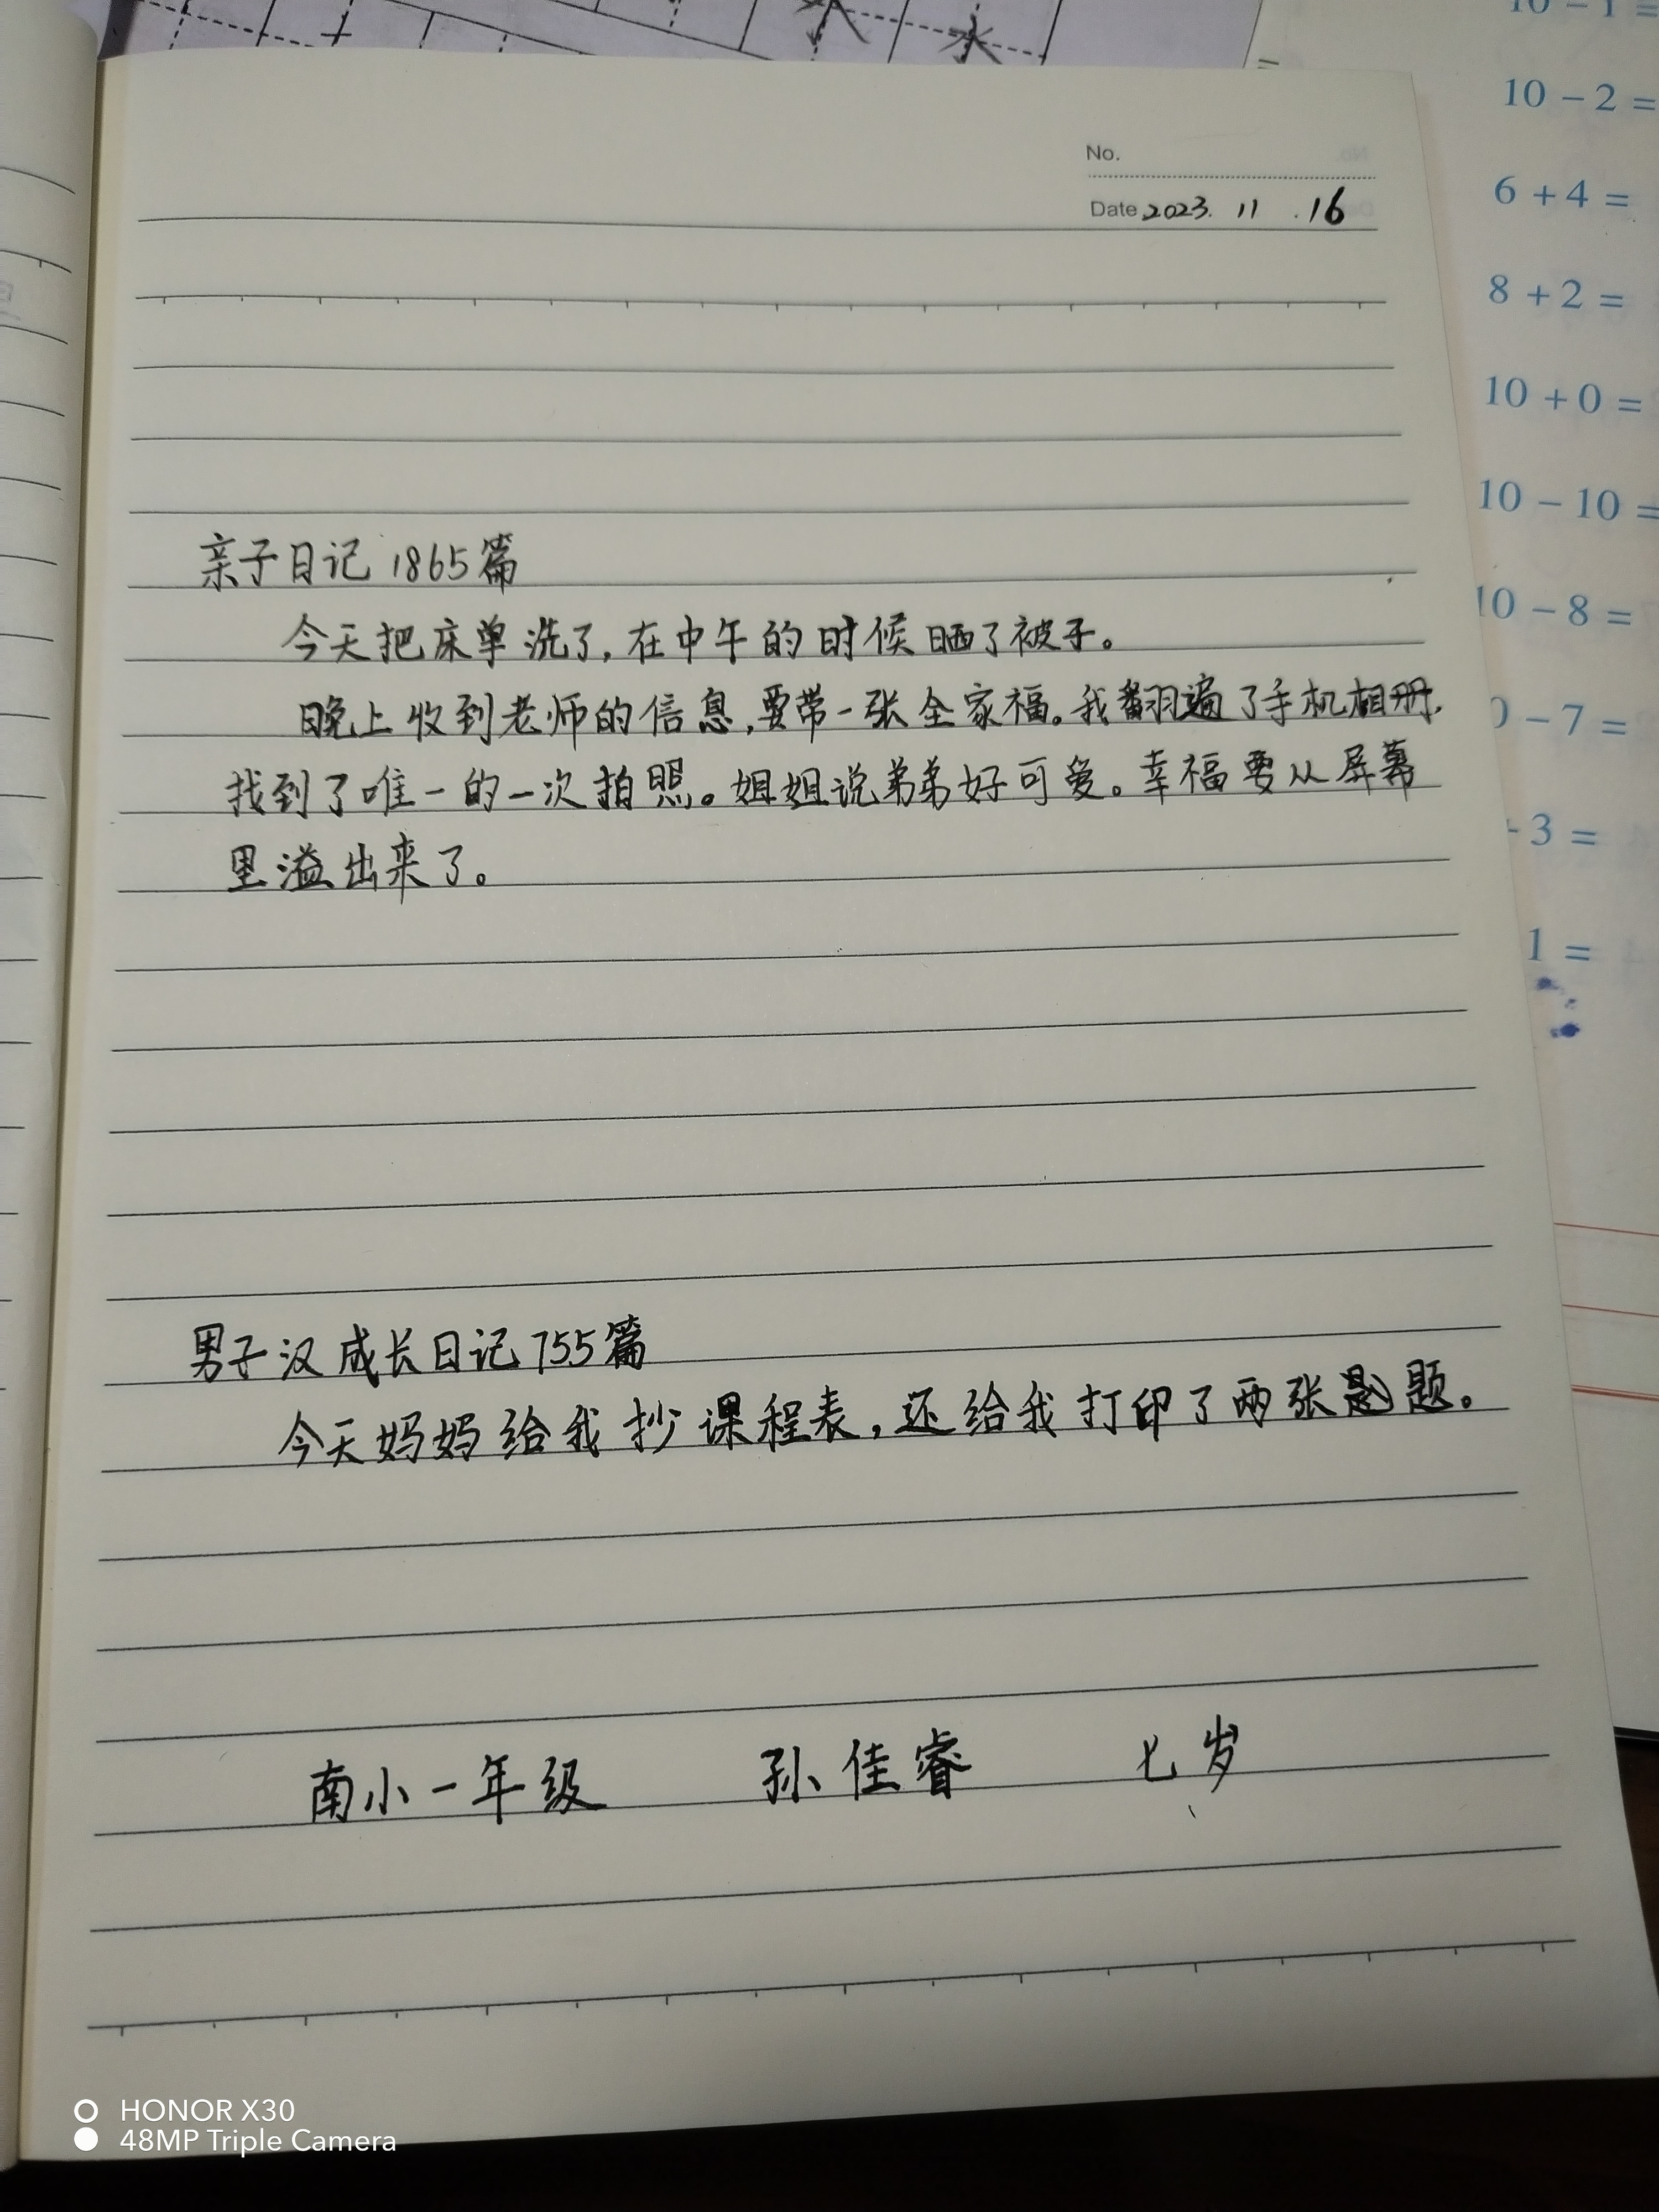 No.
Date 2023. 11 .16
亲子日记 1865篇
今天把床单洗了,在中午的时候晒了被子。
晚上收到老师的信息,要带一张全家福。我翻遍了手机相册,
找到了唯一的一次拍照。姐姐说弟弟好可爱。幸福要从屏幕
里溢出来了。
男子汉成长日记755篇
今天妈妈给我抄课程表,还给我打印了两张题。
南小一年级 孙佳睿 七岁
水
10 - 1 =
10 - 2 =
6 + 4 =
8 + 2 =
10 + 0 =
10 - 10 =
10 - 8 =
- 7 =
3 =
1 =
HONOR X30
48MP Triple Camera